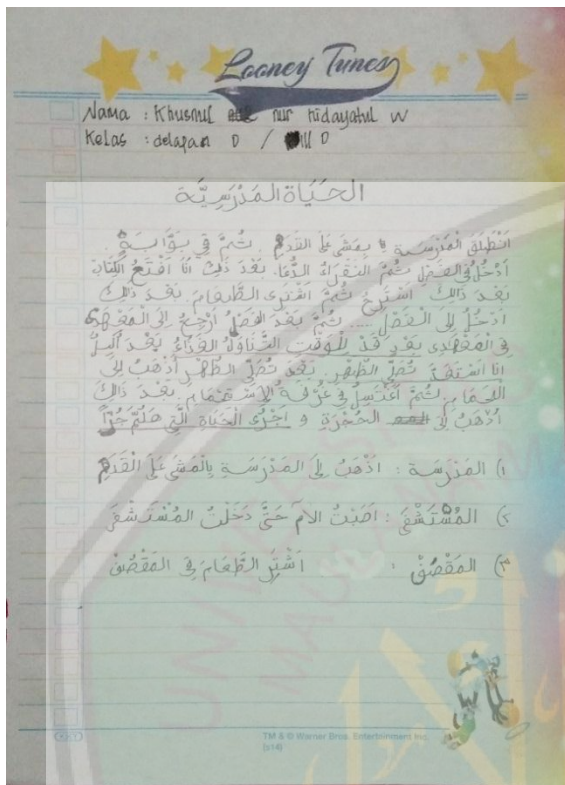 Looney Tunes
Nama : Khusnul nur hidayatul W
Kelas : delapan D / VIII D
الحَيَاة المَدْرَسِيَّة
انْطَلِقُ الْمَدْرَسَة بِمَشَى عَلَى القَدَمِ . ثُمَّ فِي بَوَّابَةِ.
اَدْخُلُ فِي الفَصْلِ ثُمَّ النَقْرَاءُ الدُّعَا. بَعْدَ ذَلِكَ اَنَا اَفْتَعُ الكِتَابَ
بَعْدَ ذَالِكَ اَسْتَرِحُ ثُمَّ اشْتَرَى الطَّعَامَ. بَعْدَ ذَلِكَ
اَدْخُلُ اِلَى الْفَصْلِ ..... ثُمَّ بَعْدَ الفَصْلُ اَرْجِعُ اِلَى المَعْهَدِى
فِي الْمَعْهَدِى بَعْدَ لِلْوَقْتِ التَّنَاوُلُ الغَدَاءُ بَعْدَ
اَنَا تُصَلِّى الظُّهْرِ. بَعْدَ تُصَلِّى الظُّهْرِ اَذْهَبُ اِلَى
الحَمَّامِ. ثُمَّ اَغْتَسِلُ فِي غُرْفَةِ الاِسْتِحْمَامِ. بَعْدَ ذَالِكَ
اَذْهَبُ اِلَى الحُجْرَةِ وَ اَجْرَى الْحَيَاة الَّتِى
١) المَدْرَسَة : اَذْهَبُ اِلَى المَدْرَسَةِ بِالْمَشَى عَلَى الْقَدَمِ
٢) المُسْتَشْفَى : اَصَبْتُ الاَمَ حَتَّى دَخَلْتُ المُسْتَشْفَى
٣) المَقْصُفْ : اَشْتَرِ الطَّعَامَ فِي المَقْصُفْ
TM & © Warner Bros. Entertainment Inc.
(s14)